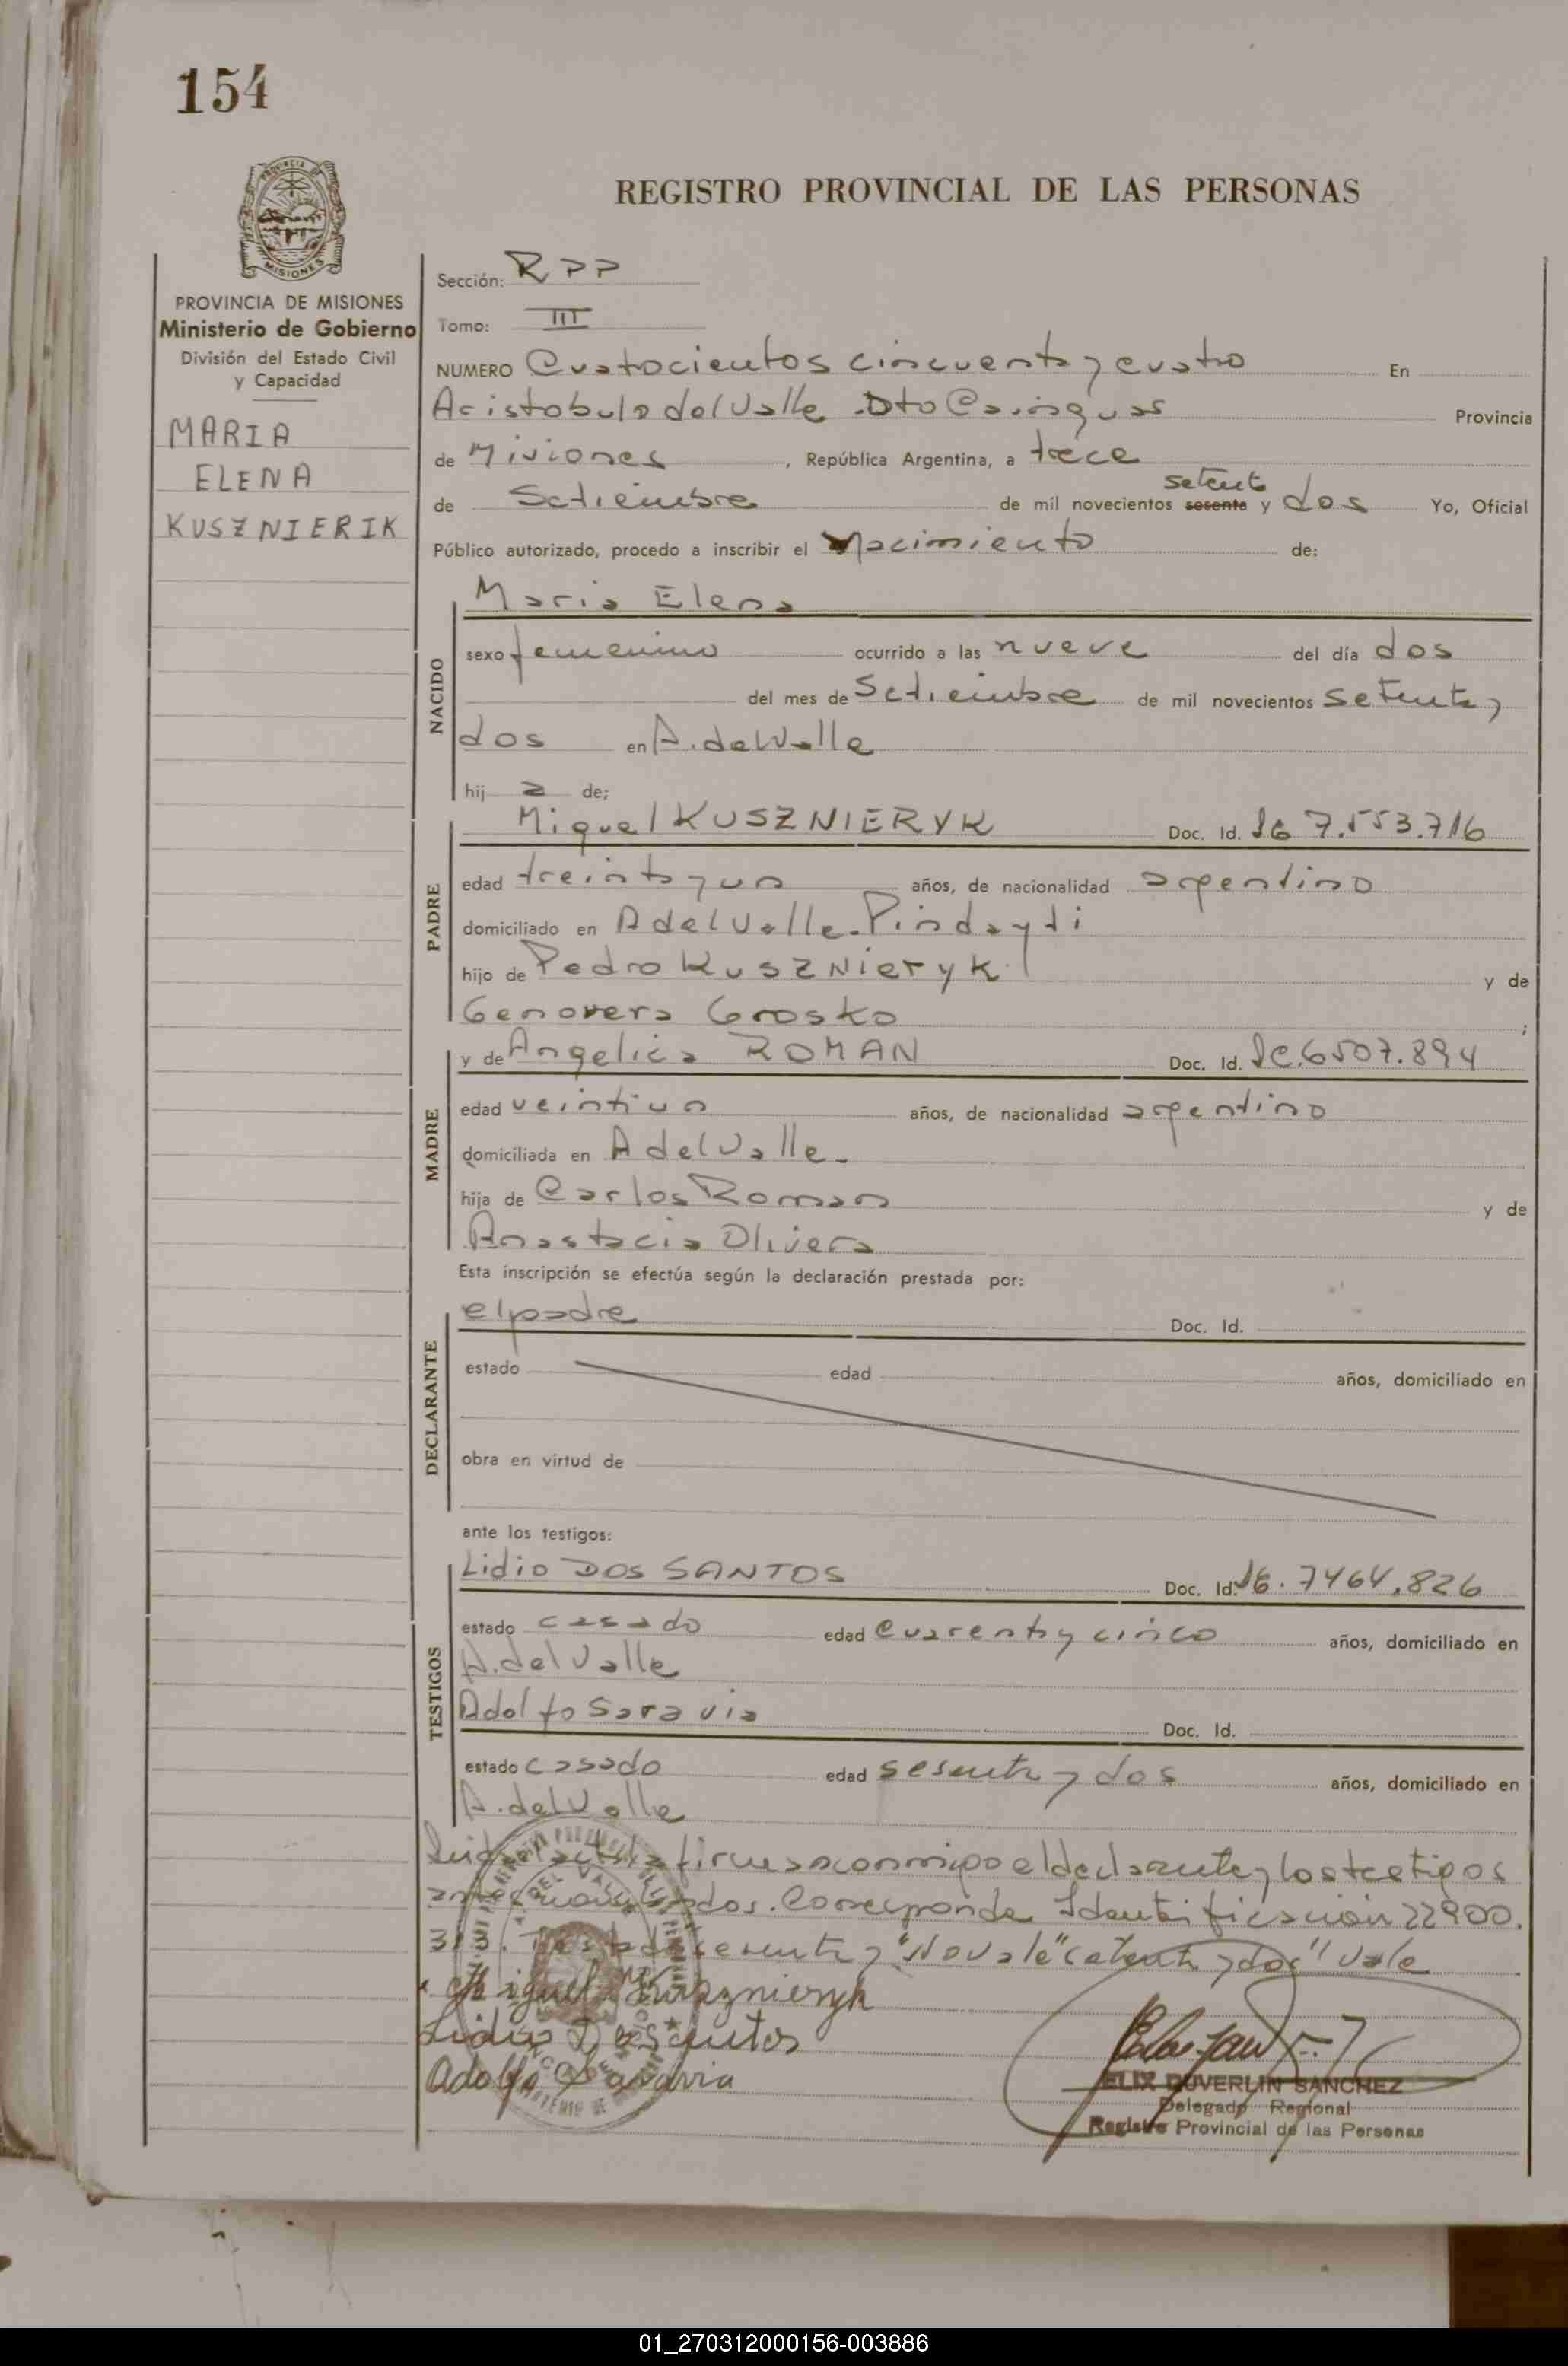 154
REGISTRO PROVINCIAL DE LAS PERSONAS
PROVINCIA
MISIONES
PROVINCIA DE MISIONES
Ministerio de Gobierno
División del Estado Civil
y Capacidad
MARIA
ELENA
KUSZNIERIK
Sección: RPP
Tomo: III
NUMERO Cuatocientos cincuenta y cuatro En
Aristobulo del Valle Dto Cainguas Provincia
de Misiones, República Argentina, a trece
setenta
de Setiembre de mil novecientos sesenta y dos Yo, Oficial
Público autorizado, procedo a inscribir el Nacimiento de:
NACIDO
Maria Elena
sexo femenino ocurrido a las nueve del día dos
del mes de Setiembre de mil novecientos setenta y
dos en A. del Valle
hij a de;
PADRE
Miguel KUSZNIERYK Doc. Id. 7.553.716
edad treinta y un años, de nacionalidad argentino
domiciliado en A del Valle. Pindayti
hijo de Pedro Kusznieryk y de
Genovera Grosko ;
MADRE
y de Angelica ROMAN Doc. Id. 6507.894
edad veintiun años, de nacionalidad argentino
domiciliada en A del Valle.
hija de Carlos Roman y de
Anastacia Olivera
Esta inscripción se efectúa según la declaración prestada por:
DECLARANTE
el padre Doc. Id.
estado edad años, domiciliado en
obra en virtud de
ante los testigos:
TESTIGOS
Lidio DOS SANTOS Doc. Id. 7464.826
estado casado edad cuarenta y cinco años, domiciliado en
A. del Valle
Adolfo Saravia Doc. Id.
estado casado edad sesenta y dos años, domiciliado en
A. del Valle
firman conmigo el declarante y los testigos
Corresponde Identificación 22900.
313. "No vale" vale
Miguel Kusznieryk
Lidio Dos Santos
Adolfo Saravia
ELIX DUVERLIN SANCHEZ
Delegado Regional
Registro Provincial de las Personas
01_270312000156-003886